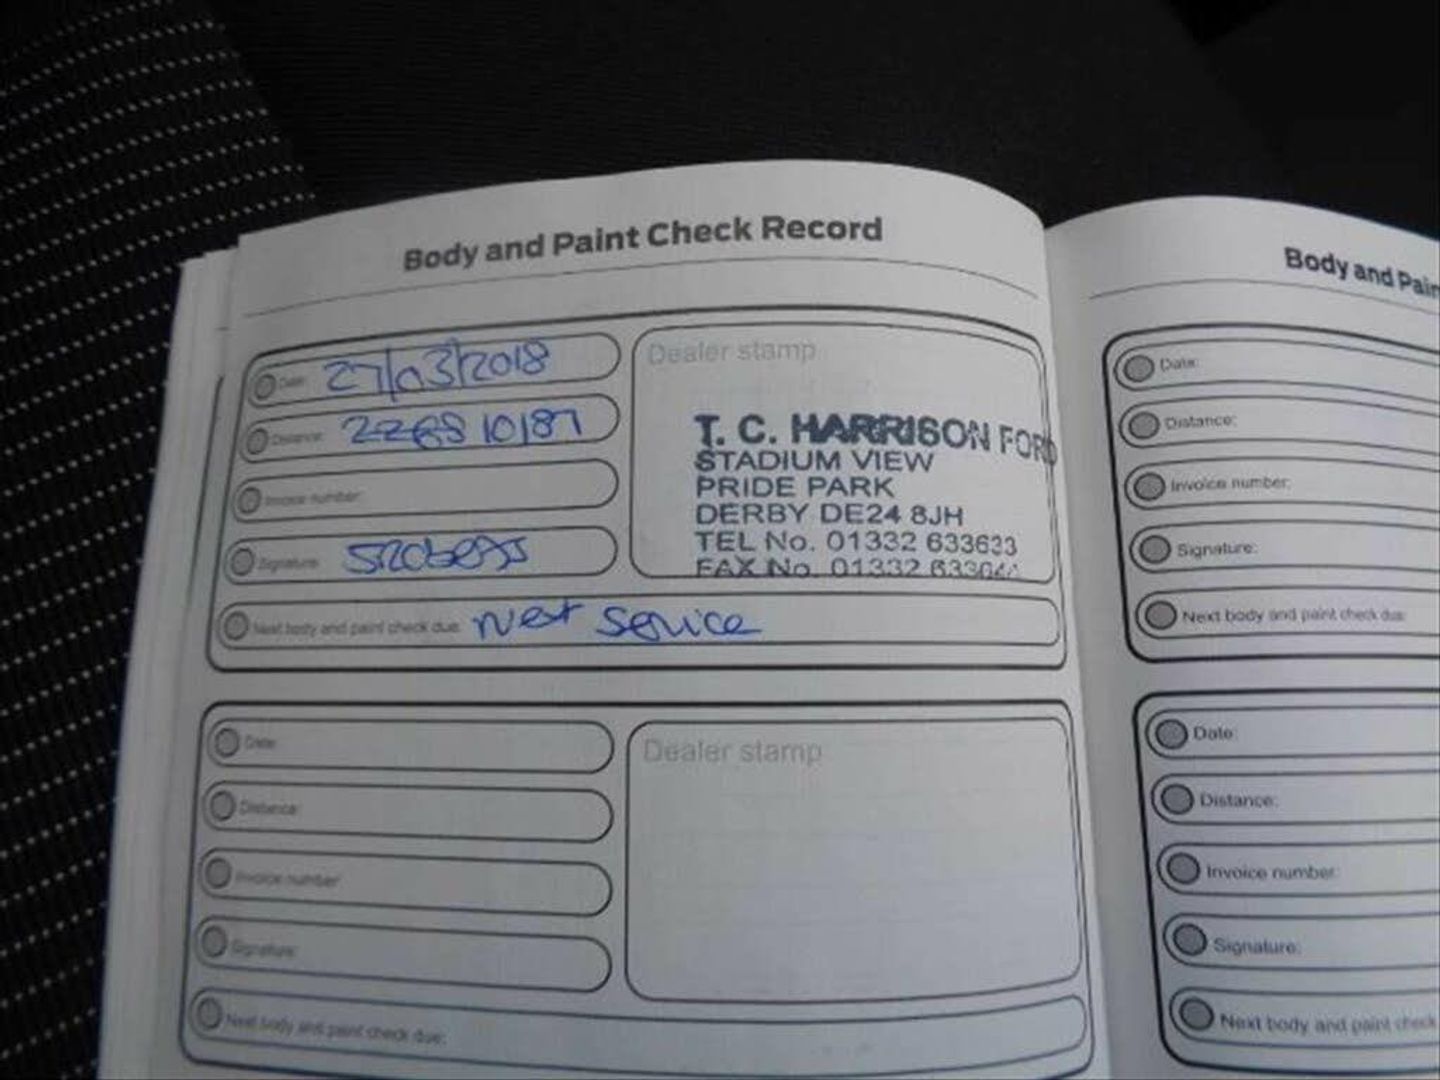 Body and Paint Check Record
Date: 27/03/2018
Distance: 10187
Invoice number:
Signature:
Next body and paint check due: Next Service
Dealer stamp
T. C. HARRISON FORD
STADIUM VIEW
PRIDE PARK
DERBY DE24 8JH
TEL No. 01332 633633
FAX No. 01332
Date:
Distance:
Invoice number:
Signature:
Next body and paint check due:
Dealer stamp
Body and Pain
Date:
Distance:
Invoice number:
Signature:
Next body and paint check due:
Date:
Distance:
Invoice number:
Signature:
Next body and paint check